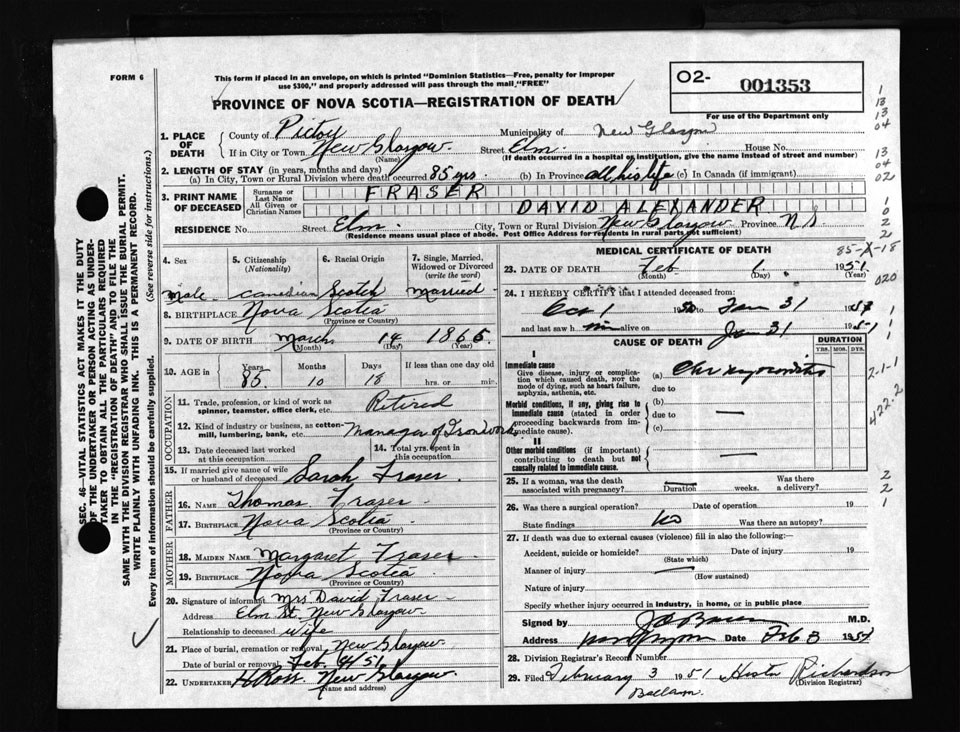 FORM 6
This form if placed in an envelope, on which is printed "Dominion Statistics—Free, penalty for improper
use $300," and properly addressed will pass through the mail "FREE"
O2- 001353
For use of the Department only
PROVINCE OF NOVA SCOTIA—REGISTRATION OF DEATH
1. PLACE OF DEATH
County of Pictou Municipality of New Glasgow
If in City or Town New Glasgow. Street Elm. House No.
(Name) (If death occurred in a hospital or institution, give the name instead of street and number)
2. LENGTH OF STAY (in years, months and days)
(a) In City, Town or Rural Division where death occurred 85 yrs (b) In Province all his life (c) In Canada (if immigrant)
3. PRINT NAME OF DECEASED
Surname or Last Name FRASER
All Given or Christian Names DAVID ALEXANDER
RESIDENCE No. Street Elm. City, Town or Rural Division New Glasgow Province N S
(Residence means usual place of abode. Post Office Address for residents in rural parts not sufficient)
4. Sex Male
5. Citizenship (Nationality) Canadian
6. Racial Origin Scotch
7. Single, Married, Widowed or Divorced (write the word) married
8. BIRTHPLACE Nova Scotia
(Province or Country)
9. DATE OF BIRTH March 14 1865
(Month) (Day) (Year)
10. AGE in Years 85 Months 10 Days 18 If less than one day old hrs. or min.
OCCUPATION
11. Trade, profession, or kind of work as spinner, teamster, office clerk, etc. Retired
12. Kind of industry or business, as cotton-mill, lumbering, bank, etc. Manager of Ironwork
13. Date deceased last worked at this occupation
14. Total yrs. spent in this occupation
15. If married give name of wife or husband of deceased Sarah Fraser
FATHER
16. NAME Thomas Fraser
17. BIRTHPLACE Nova Scotia
(Province or Country)
MOTHER
18. MAIDEN NAME Margaret Fraser
19. BIRTHPLACE Nova Scotia
(Province or Country)
20. Signature of informant Mrs David Fraser
Address Elm St. New Glasgow
Relationship to deceased wife
21. Place of burial, cremation or removal New Glasgow
Date of burial or removal Feb. 4/51
22. UNDERTAKER H Ross. New Glasgow.
(Name and address)
MEDICAL CERTIFICATE OF DEATH
23. DATE OF DEATH Feb 1. 1951
(Month) (Day)
24. I HEREBY CERTIFY that I attended deceased from:
Oct 1 1950 to Jan 31 1951
and last saw him alive on Jan 31 1951
CAUSE OF DEATH
DURATION
YRS. MOS. DYS.
I
Immediate cause
Give disease, injury or complication which caused death, NOT the mode of dying, such as heart failure, asphyxia, asthenia, etc.
(a) Chr myocarditis
due to
Morbid conditions, if any, giving rise to immediate cause (stated in order proceeding backwards from immediate cause).
(b)
due to
(c)
II
Other morbid conditions (if important) contributing to death but not causally related to immediate cause.
25. If a woman, was the death associated with pregnancy? Duration weeks. Was there a delivery?
26. Was there a surgical operation? Date of operation 19
State findings No Was there an autopsy?
27. If death was due to external causes (violence) fill in also the following:
Accident, suicide or homicide? Date of injury 19
(State which)
Manner of injury
(How sustained)
Nature of injury
Specify whether injury occurred in industry, in home, or in public place
Signed by M.D.
Address Date Feb 3 1951
28. Division Registrar's Record Number
29. Filed February 3 1951 Richardson
(Division Registrar)
SEC. 46—VITAL STATISTICS ACT MAKES IT THE DUTY
OF THE UNDERTAKER OR PERSON ACTING AS UNDER-
TAKER TO OBTAIN ALL THE PARTICULARS REQUIRED
IN THE "REGISTRATION OF DEATH" AND TO FILE THE
SAME WITH THE DIVISION REGISTRAR WHO SHALL ISSUE THE BURIAL PERMIT.
WRITE PLAINLY WITH UNFADING INK. THIS IS A PERMANENT RECORD.
Every item of information should be carefully supplied. (See reverse side for instructions.)
1
13
13
04
13
04
02
1
0
2
2
85-X-18
020
1
1
2-1-1
422.2
2
2
1